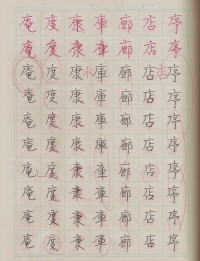 庵度康庫廊店序
庵度康庫廊店序
庵度康水庫廊店店序
庵度康庫廊店序
庵度康庫廊店序
庵度康庫廊店序
庵度康庫廊店序
庵度康庫廊店序
庵度康庫廊店序
庵度康庫廊店序